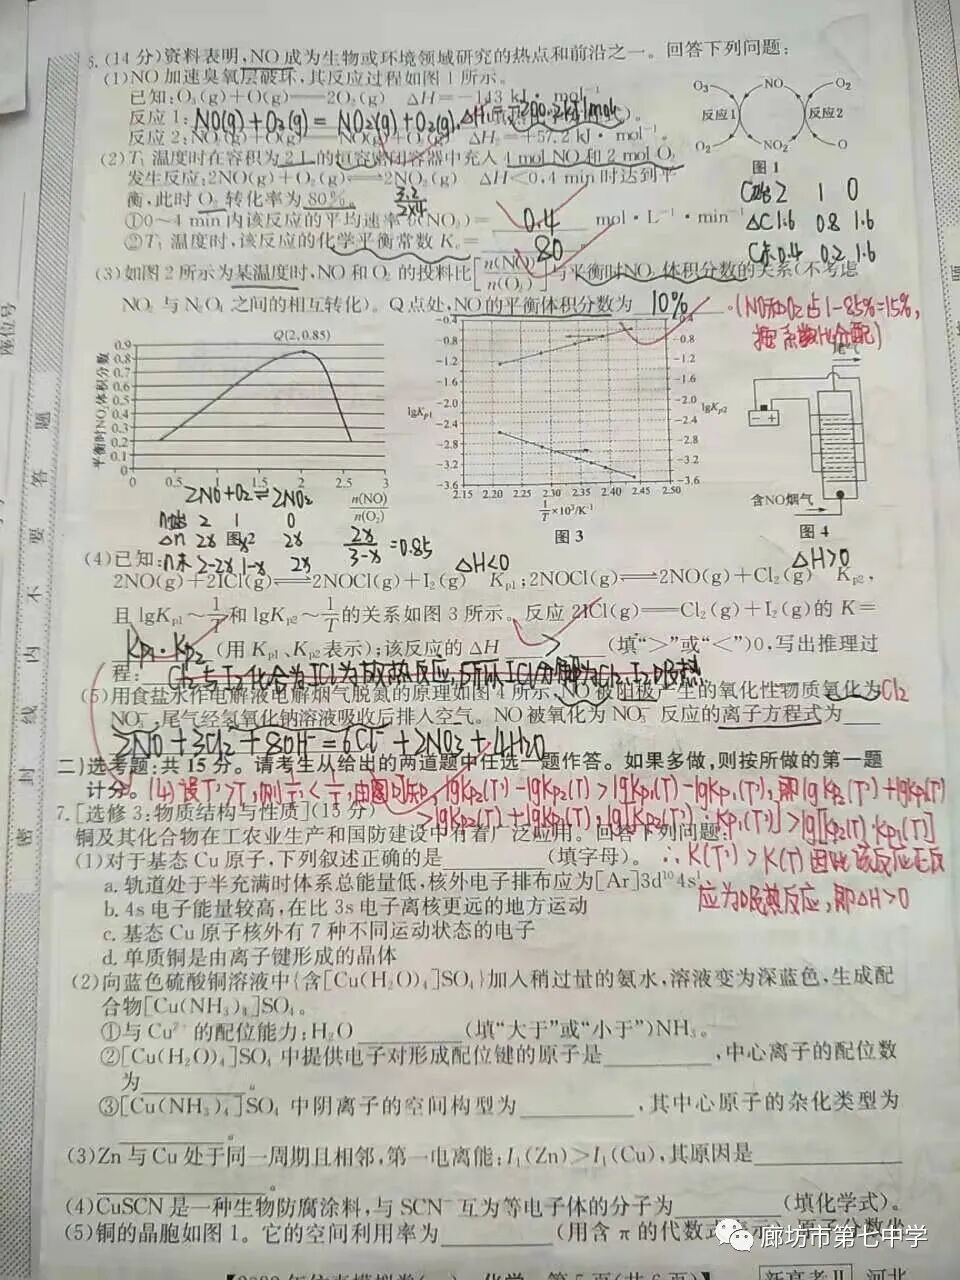 (14分)资料表明,NO成为生物或环境领域研究的热点和前沿之一。回答下列问题:
(1)NO加速臭氧层破坏,其反应过程如图1所示。
已知:O₃(g)+O(g)══2O₂(g) ΔH=-143 kJ·mol⁻¹
反应1:
反应2: ΔH₂=+57.2 kJ·mol⁻¹。
O₃
NO
O₂
反应1
反应2
O₂
NO₂
O
图1
(2)T₁温度时在容积为2 L的恒容密闭容器中充入4 mol NO和2 mol O₂
发生反应:2NO(g)+O₂(g)⇌2NO₂(g) ΔH<0,4 min时达到平
衡,此时O₂转化率为80%。
①0~4 min内该反应的平均速率v(NO₂)= 0.4 mol·L⁻¹·min⁻¹
②T₁温度时,该反应的化学平衡常数K= 80
2 1 0
ΔC 1.6 0.8 1.6
0.4 0.2 1.6
(3)如图2所示为某温度时,NO和O₂的投料比[n(NO)/n(O₂)]与平衡时NO₂体积分数的关系(不考虑
NO₂与N₂O₄之间的相互转化)。Q点处,NO的平衡体积分数为 10% 。
(NO和O₂占1-85%=15%,
按系数比分配)
Q(2,0.85)
平衡时NO₂体积分数
0.9
0.8
0.7
0.6
0.5
0.4
0.3
0.2
0.1
0
0 0.5 1 1.5 2 2.5 3
n(NO)/n(O₂)
图2
2NO+O₂⇌2NO₂
2 1 0
Δn 2x x 2x
n末 2-2x 1-x 2x
2x/(3-x)=0.85
lgKp1
lgKp2
-0.4
-0.8
-1.2
-1.6
-2.0
-2.4
-2.8
-3.2
-3.6
2.15 2.20 2.25 2.30 2.35 2.40 2.45 2.50
1/T×10³/K⁻¹
图3
含NO烟气
图4
(4)已知:
ΔH<0
ΔH>0
2NO(g)+2ICl(g)⇌2NOCl(g)+I₂(g) Kp1;2NOCl(g)⇌2NO(g)+Cl₂(g) Kp2,
且lgKp1~1/T和lgKp2~1/T的关系如图3所示。反应2ICl(g)══Cl₂(g)+I₂(g)的K=
Kp1·Kp2 (用Kp1、Kp2表示);该反应的ΔH > (填“>”或“<”)0,写出推理过
程: Cl₂与I₂化合为ICl为放热反应,所以ICl分解为Cl₂、I₂吸热
(5)用食盐水作电解液电解烟气脱氮的原理如图4所示,NO被阳极产生的氧化性物质氧化为 Cl₂
NO₃⁻,尾气经氢氧化钠溶液吸收后排入空气。NO被氧化为NO₃⁻反应的离子方程式为
2NO+3Cl₂+8OH⁻=6Cl⁻+2NO₃⁻+4H₂O
二)选考题:共15分。请考生从给出的两道题中任选一题作答。如果多做,则按所做的第一题
计分。
(4)设T'>T,则1/T'<1/T,由图可知,lgKp2(T')-lgKp2(T)>lgKp1(T)-lgKp1(T'),即lgKp2(T')+lgKp1(T')
>lgKp2(T)+lgKp1(T),lg[Kp2(T')·Kp1(T')]>lg[Kp2(T)·Kp1(T)]
∴K(T')>K(T) 因此该反应正反
应为吸热反应,即ΔH>0
7.[选修3:物质结构与性质](15分)
铜及其化合物在工农业生产和国防建设中有着广泛应用。回答下列问题:
(1)对于基态Cu原子,下列叙述正确的是 (填字母)。
a.轨道处于半充满时体系总能量低,核外电子排布应为[Ar]3d¹⁰4s¹
b.4s电子能量较高,在比3s电子离核更远的地方运动
c.基态Cu原子核外有7种不同运动状态的电子
d.单质铜是由离子键形成的晶体
(2)向蓝色硫酸铜溶液中{含[Cu(H₂O)₄]SO₄}加入稍过量的氨水,溶液变为深蓝色,生成配
合物[Cu(NH₃)₄]SO₄。
①与Cu²⁺的配位能力:H₂O (填“大于”或“小于”)NH₃。
②[Cu(H₂O)₄]SO₄中提供电子对形成配位键的原子是 ,中心离子的配位数
为 。
③[Cu(NH₃)₄]SO₄中阴离子的空间构型为 ,其中心原子的杂化类型为
。
(3)Zn与Cu处于同一周期且相邻,第一电离能:I₁(Zn)>I₁(Cu),其原因是
。
(4)CuSCN是一种生物防腐涂料,与SCN⁻互为等电子体的分子为 (填化学式)。
(5)铜的晶胞如图1。它的空间利用率为 (用含π的代数式表示
廊坊市第七中学
新高考Ⅱ 河北
座位号
密 封 线 内 不 要 答 题